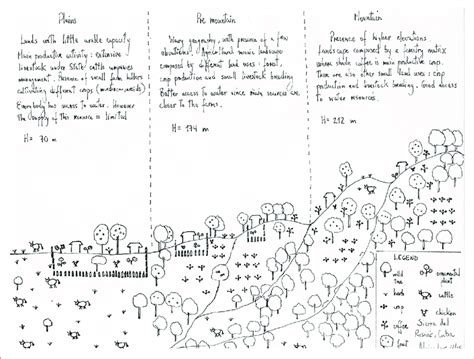 Plains
Lands with little arable capacity
Main productive activity: extensive
livestock under State cattle companies
management. Presence of small farm
cultivating different crops
Everybody has access to water. However
the supply of this resource is limited
H= 70 m
Pre mountain
Wavy geography, with presence of a few
elevations. Agricultural mosaic landscape
composed by different land uses: forest,
crop production and small livestock breeding
Better access to water since main sources are
closer to the farms.
H= 174 m
Mountain
Presence of higher elevations
Landscape composed by a forestry matrix
where shade coffee is main productive crop.
There are also other small land uses: crop
production and livestock breeding. Good access
to water resources.
H= 212 m
LEGEND
wild tree
ornamental plant
herb
cattle
crop
chicken
coffee
fruit
Sierra del
Rosario, Cuba